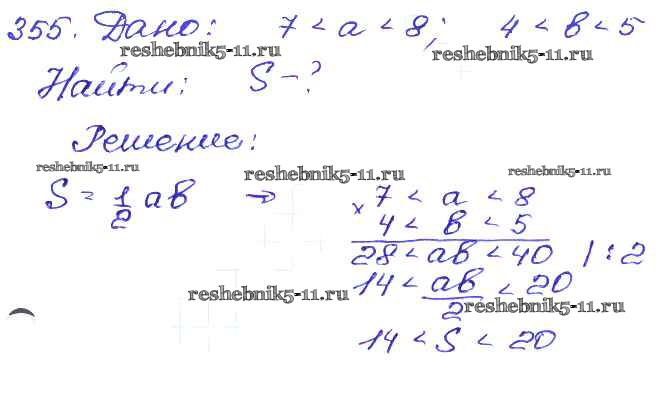 355. Дано: 7 < a < 8; 4 < b < 5
reshebnik5-11.ru reshebnik5-11.ru
Найти: S - ?
Решение:
reshebnik5-11.ru reshebnik5-11.ru reshebnik5-11.ru
S = 1/2 ab → × 7 < a < 8
4 < b < 5
28 < ab < 40 | : 2
14 < ab/2 < 20
reshebnik5-11.ru reshebnik5-11.ru
14 < S < 20